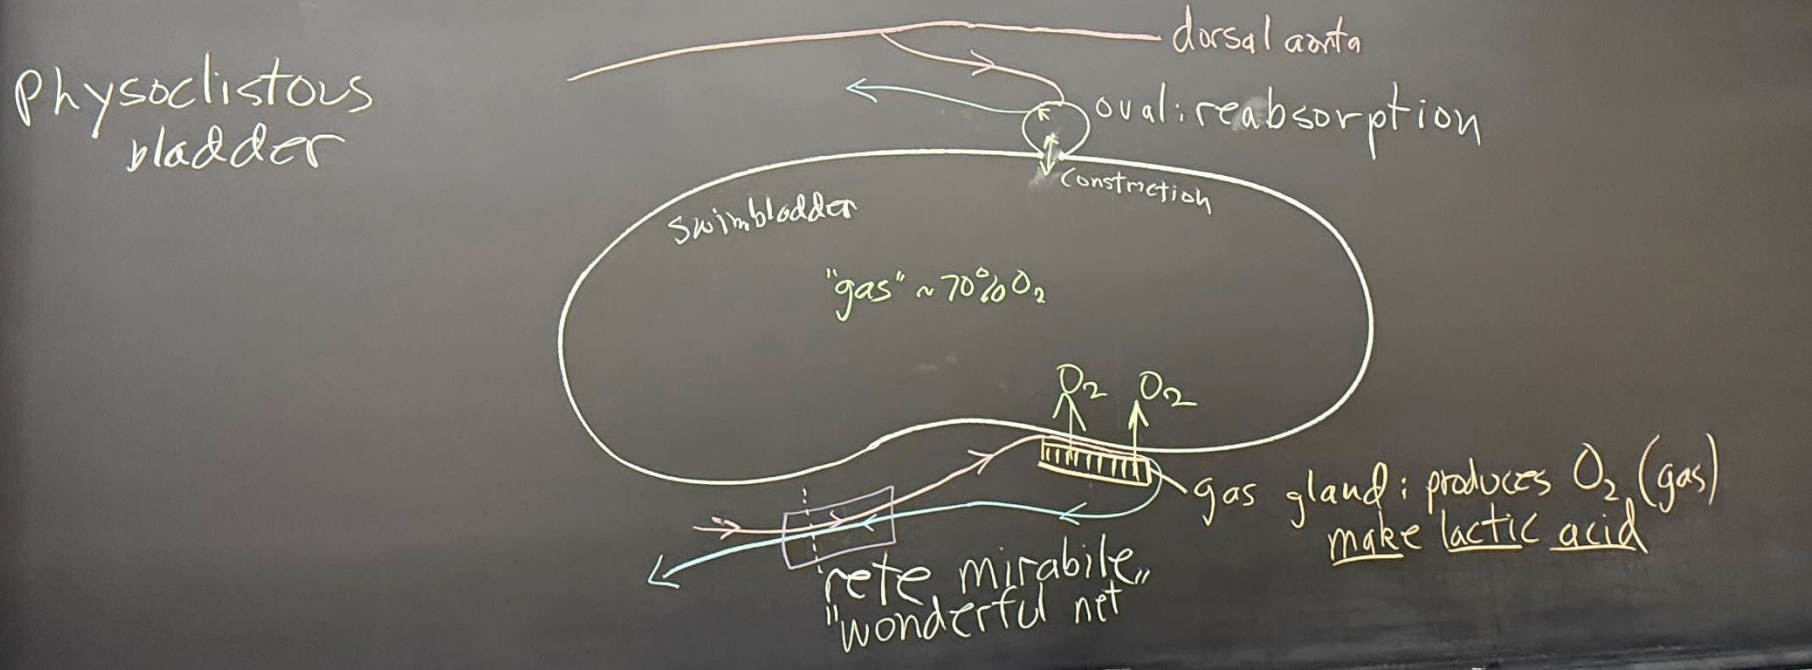 Physoclistous
bladder
dorsal aorta
oval: reabsorption
constriction
swimbladder
"gas" ~ 70% O₂
O₂ O₂
gas gland: produces O₂ (gas)
make lactic acid
rete mirabile
"wonderful net"